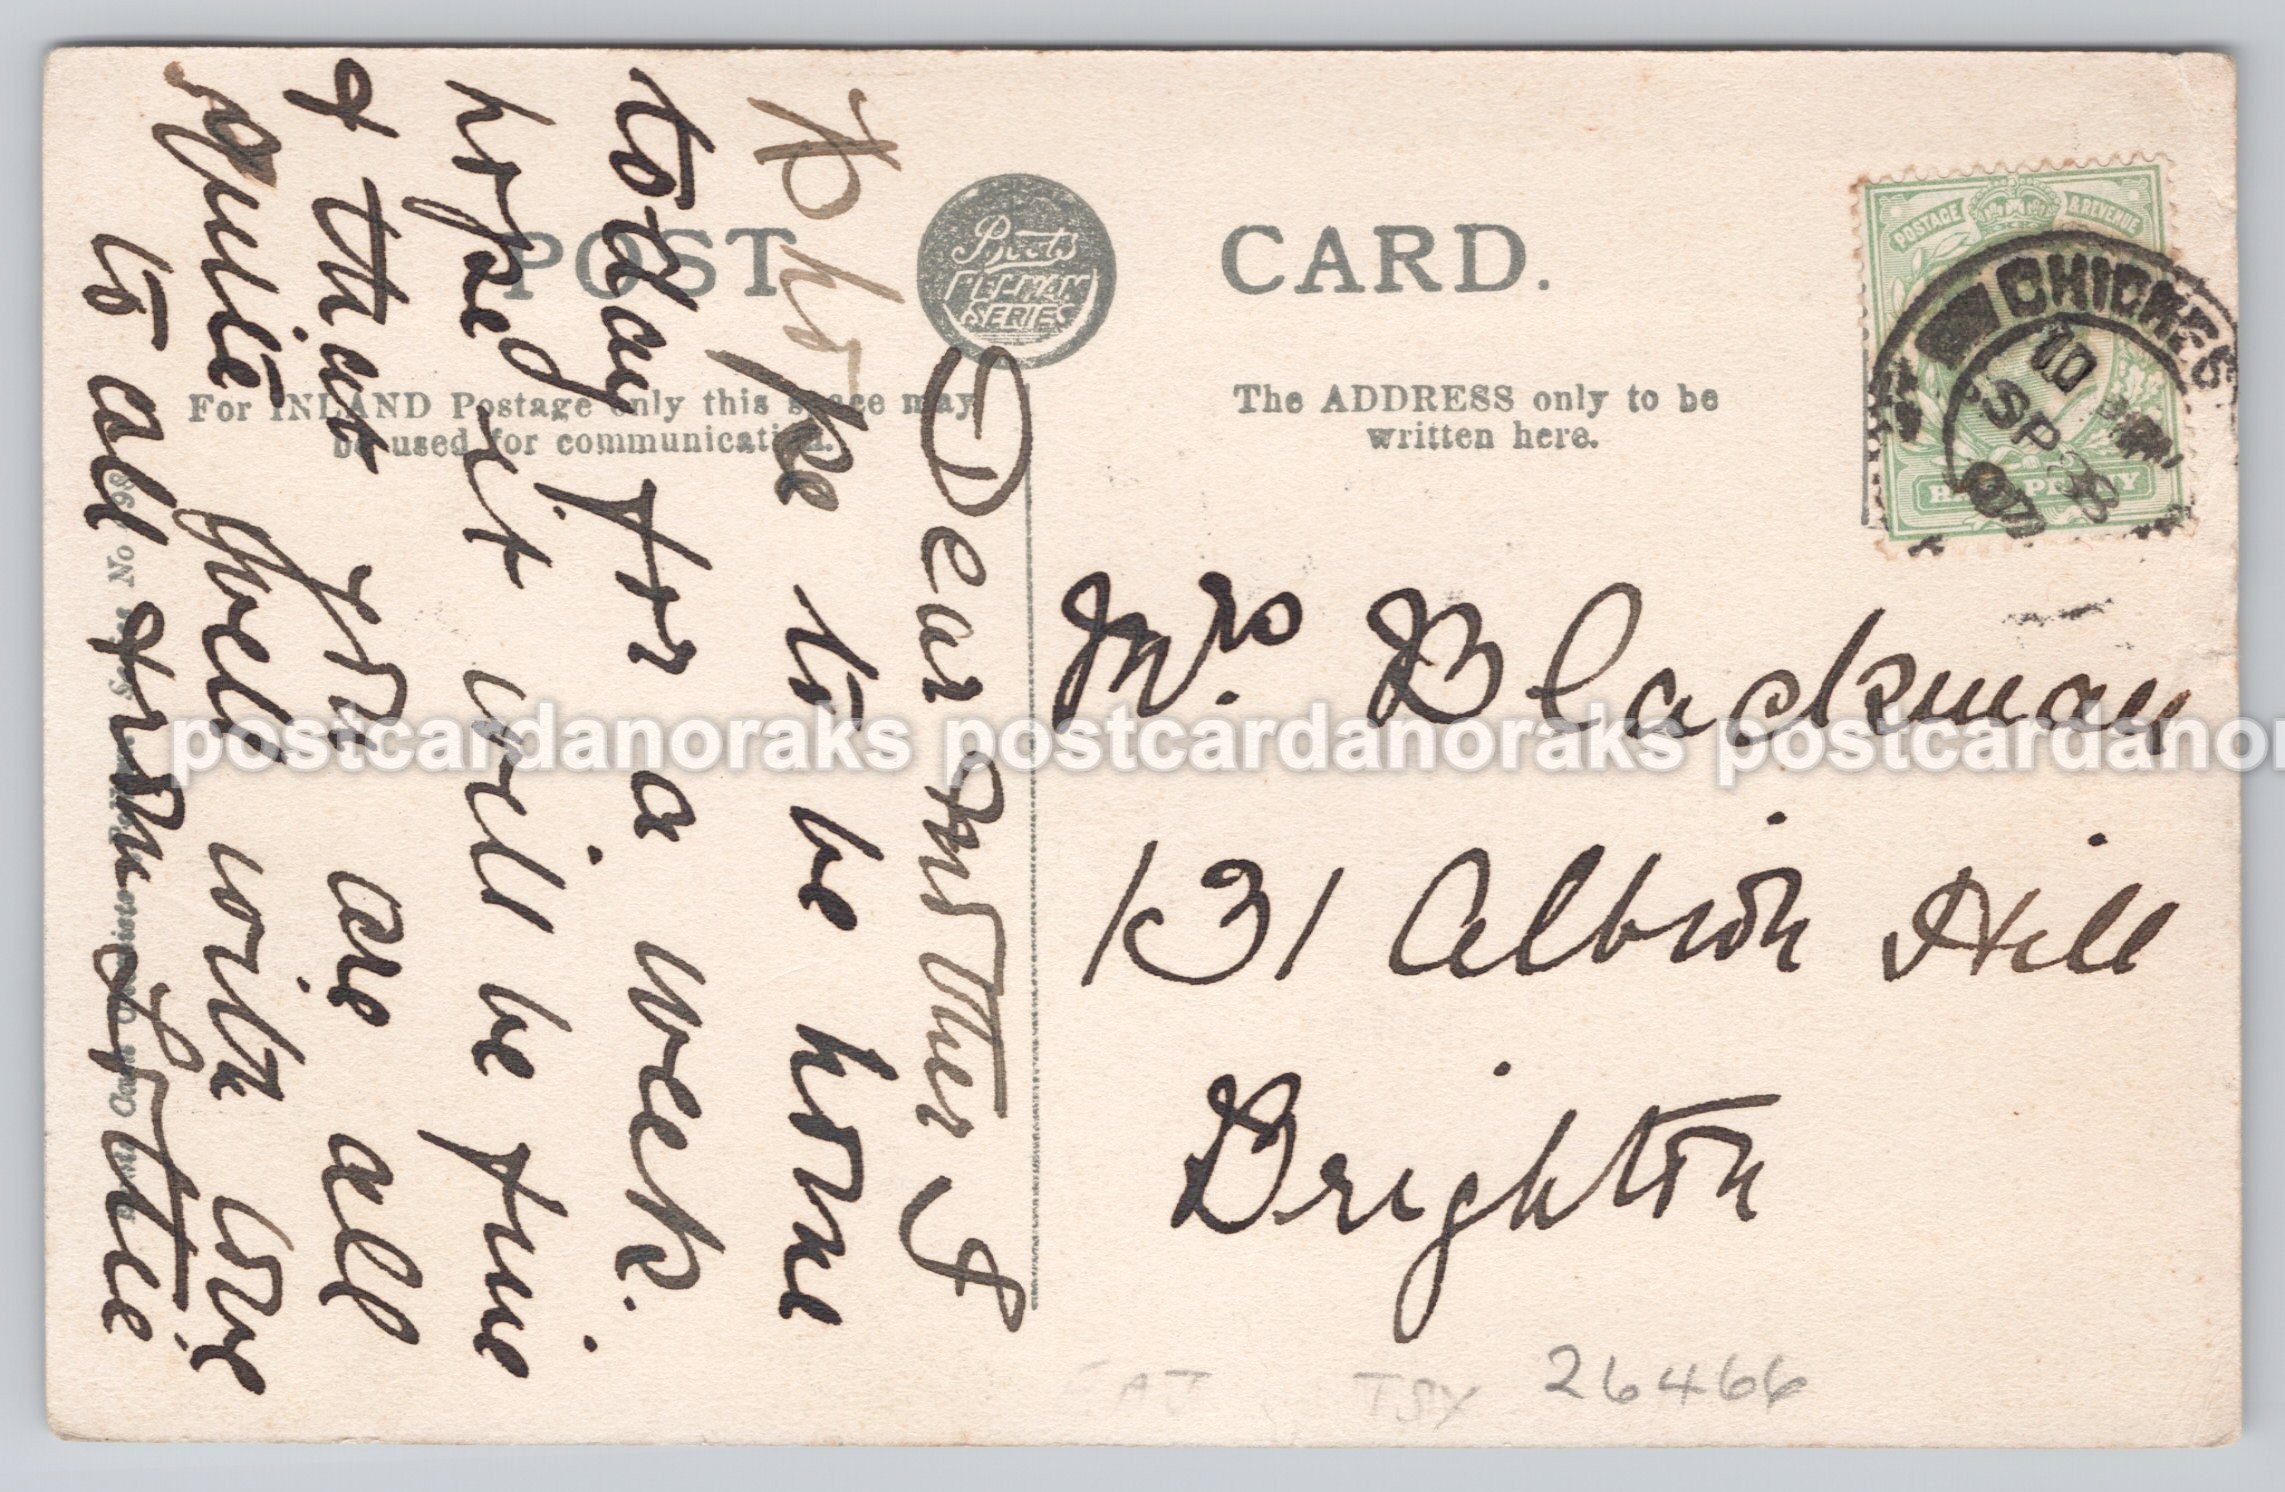 POST CARD.
Boots
PELHAM
SERIES
For INLAND Postage only this space may
be used for communication.
The ADDRESS only to be
written here.
POSTAGE & REVENUE
HALFPENNY
CHICHES
SP 28
07
Dear Mother I
hope to be home
today for a week.
hoped it will be fine
& that you are all
quite well with love
to all from Lottie
Mrs. Blackman
131 Albion Hill
Brighton
26466
postcardanoraks postcardanoraks postcardanor